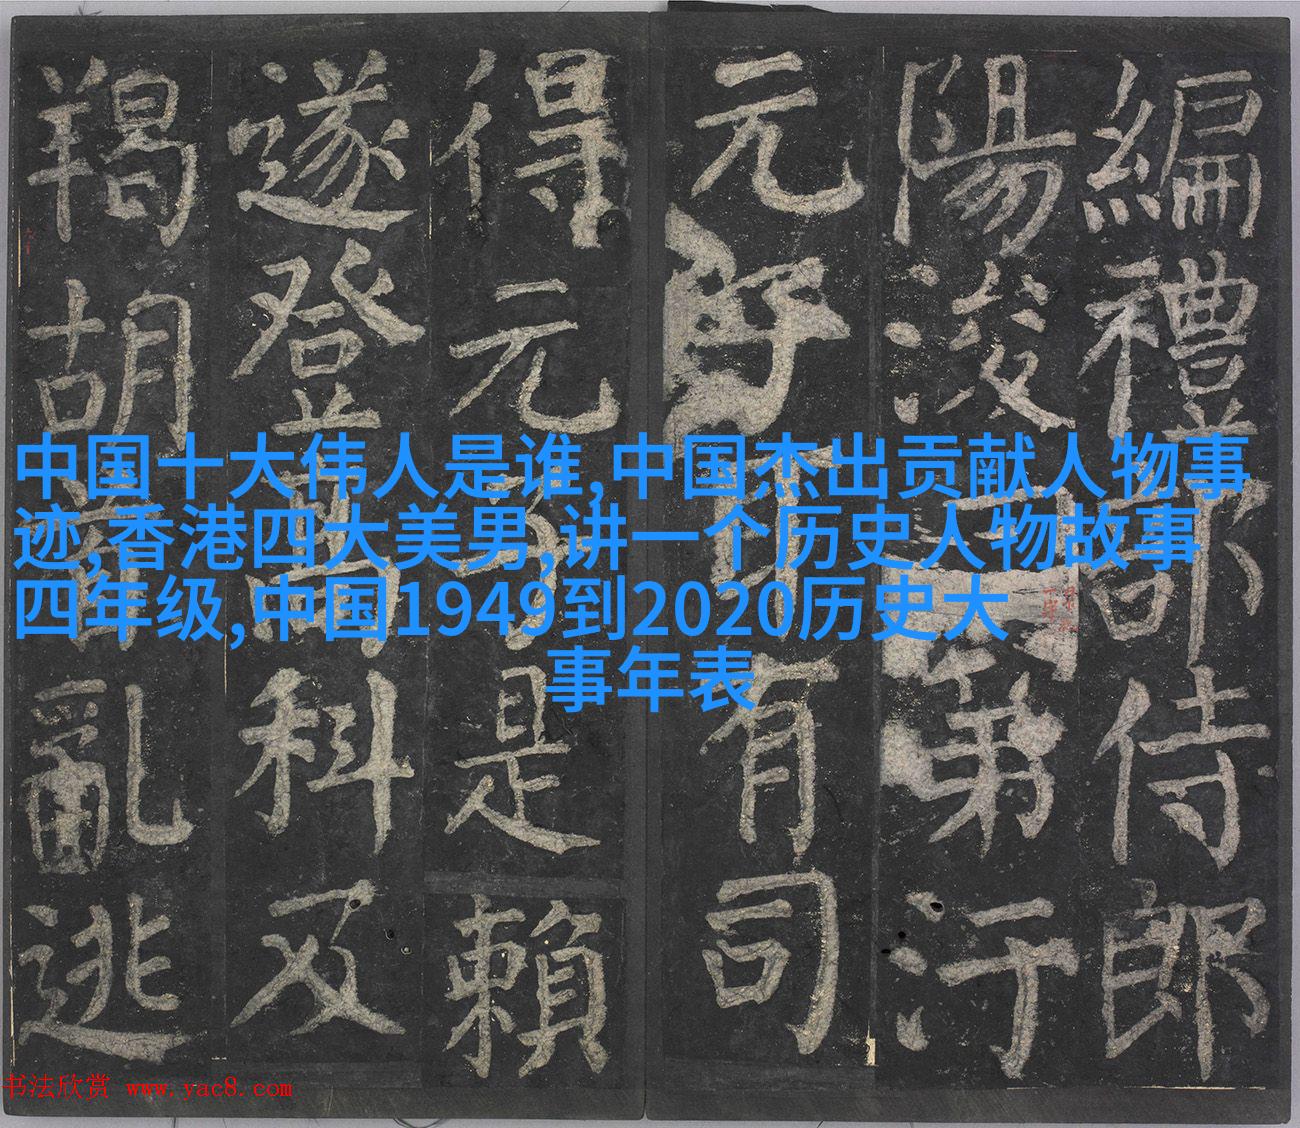 編禮部侍郎
陽浚
第汙
元
有司
得元
是賴
遂登
科及
羯胡
亂逃
中国十大伟人是谁,中国杰出贡献人物事
迹,香港四大美男,讲一个历史人物故事
四年级,中国1949到2020历史大
事年表
书法欣赏 www.yac8.com